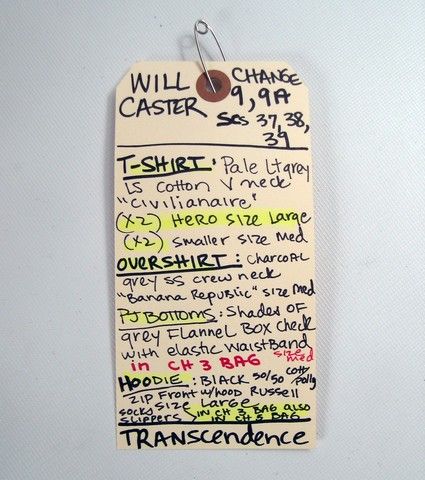 WILL CHANGE
CASTER 9, 9A
SCS 37, 38,
39
T-SHIRT: Pale Lt grey
LS cotton V neck
"Civilianaire"
(X2) HERO SIZE Large
(X2) smaller size med
OVERSHIRT: CHARCOAL
grey SS crew neck
"Banana Republic" SIZE med
PJ BOTTOMS: Shades OF
grey Flannel Box Check
with elastic waistBand
in CH 3 BAG size med
HOODIE: BLACK 50/50 cott/polly
ZIP Front w/hood Russell
socks size Large
slippers } in CH 3 BAG also in CH 5 BAG
TRANScendence